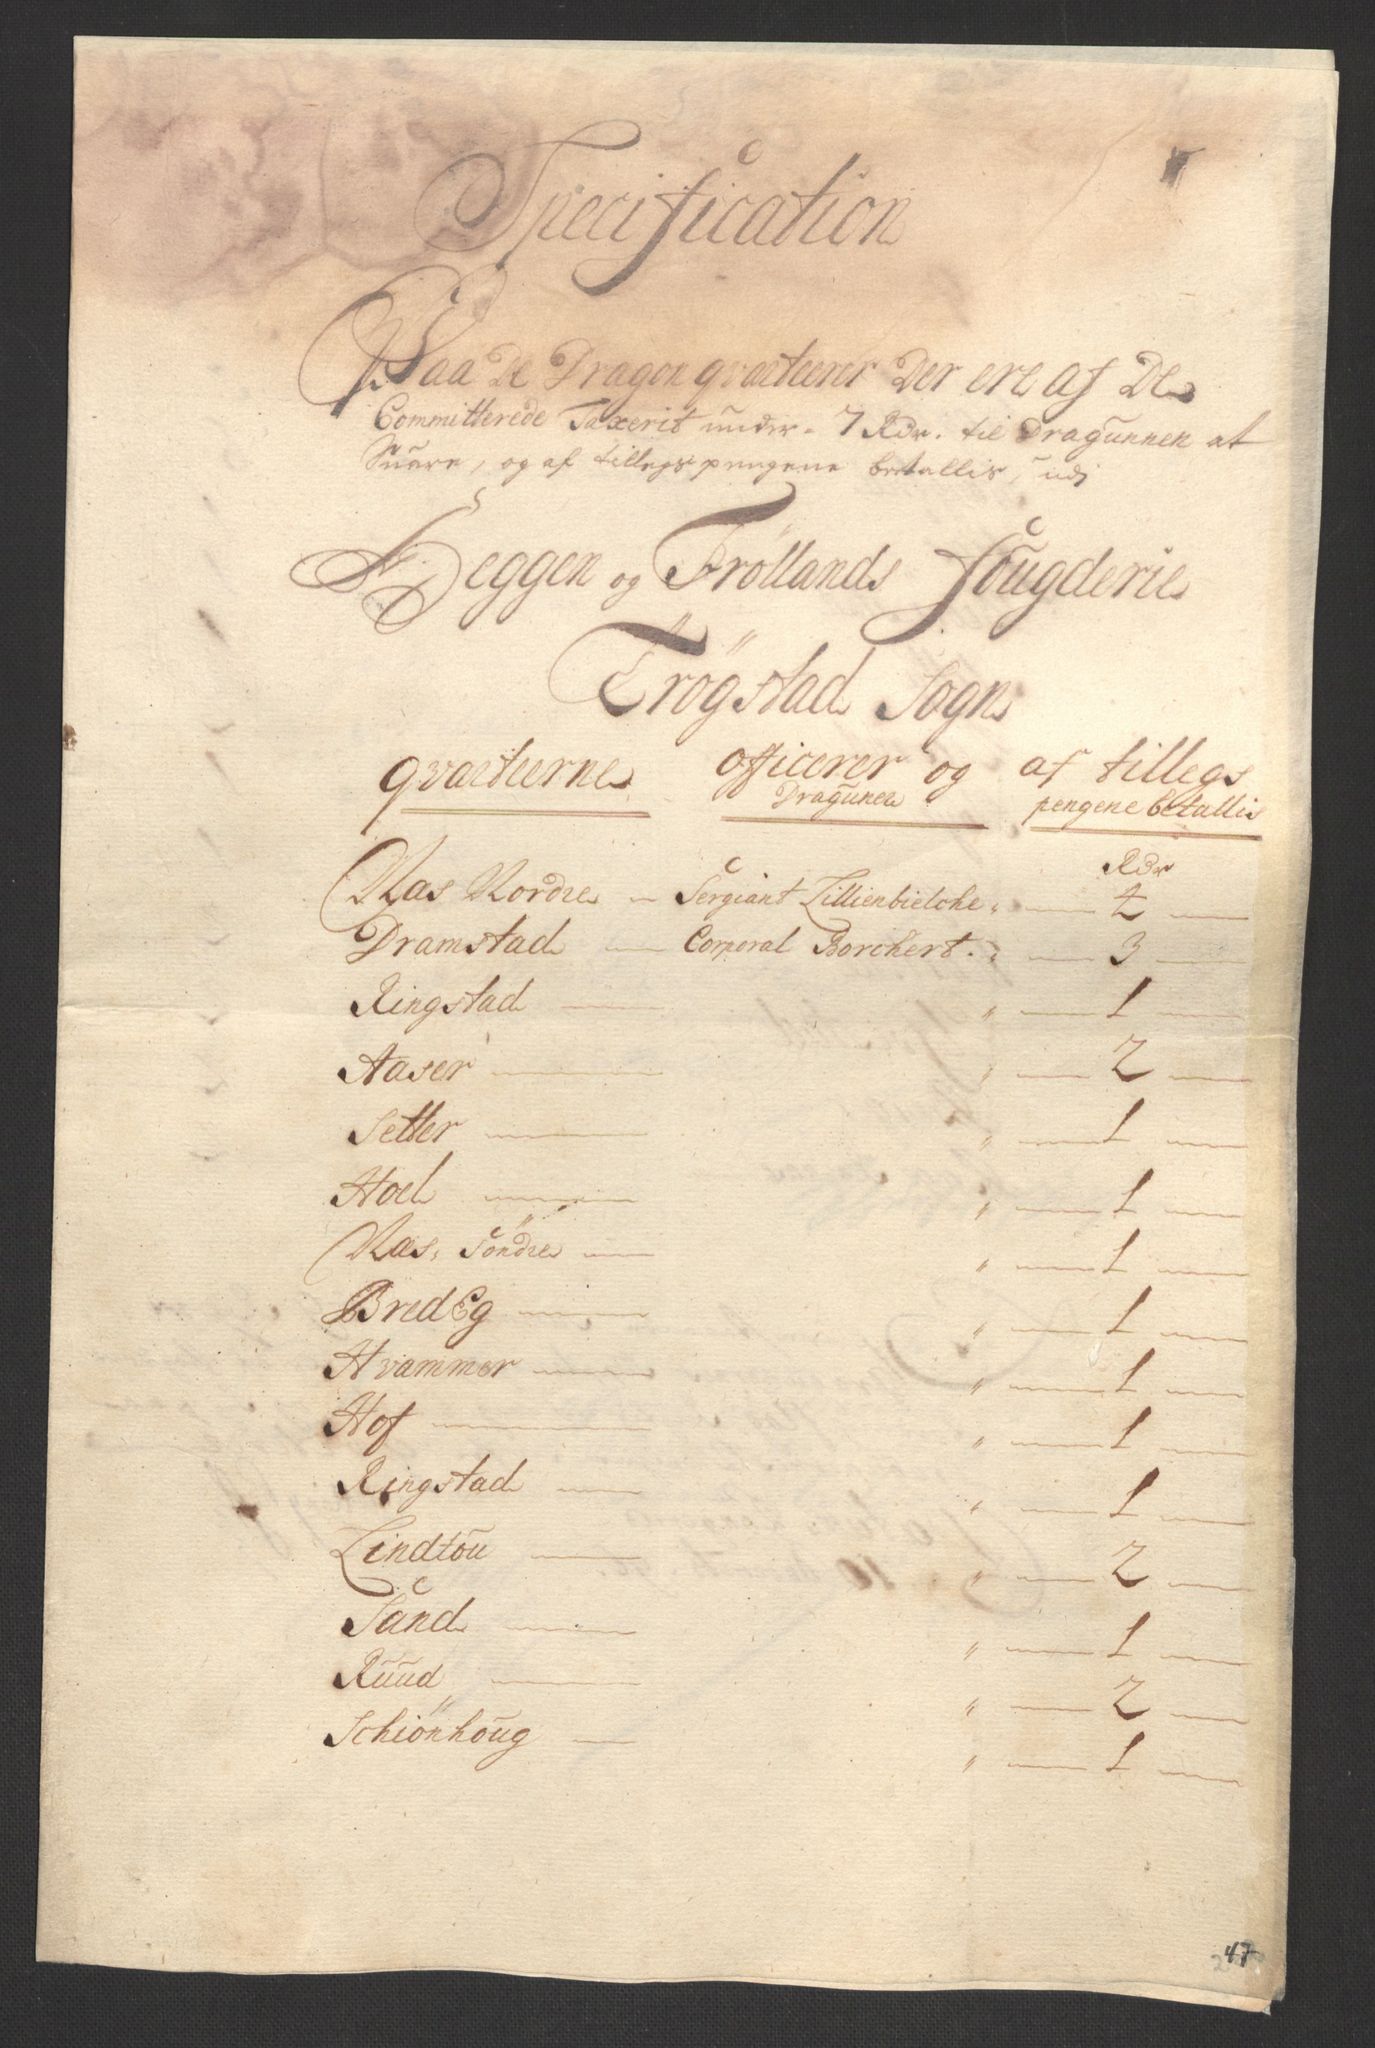 Specification
Paa De Dragon qvarteerer Der ere af De
Committerede Taxerit under 7 Rdr. til Dragunnen at
Suare, og af tillegs pengene betallis, udj
Heggen og Fröllands fougderie
Trögstad Sogn
qvarteerne officerer og af tillegs
Dragunen pengene betallis
Rdr
Raas Nordre Sergiant Lillienbielche " 2
Dramstad Corporal Borchert " 3
Ringstad " 1
Aaser " 2
Setter " 1
Hoel " 1
Raas Söndre " 1
Bred Eg " 1
Hvammer " 1
Hof " 1
Ringstad " 1
Lindtou " 2
Sand " 1
Ruud " 2
Schiönhoug " 1
47